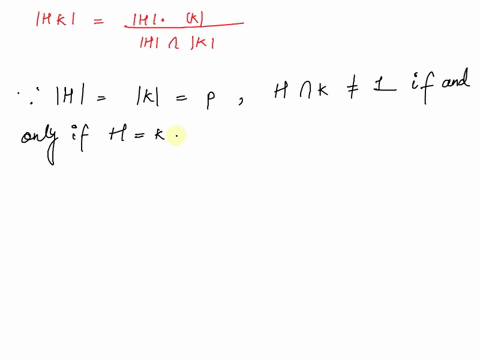 |HK| = |H|· |K| / |H| ∩ |K|
∵ |H| = |K| = p , H ∩ K ≠ 1 if and
only if H = K .